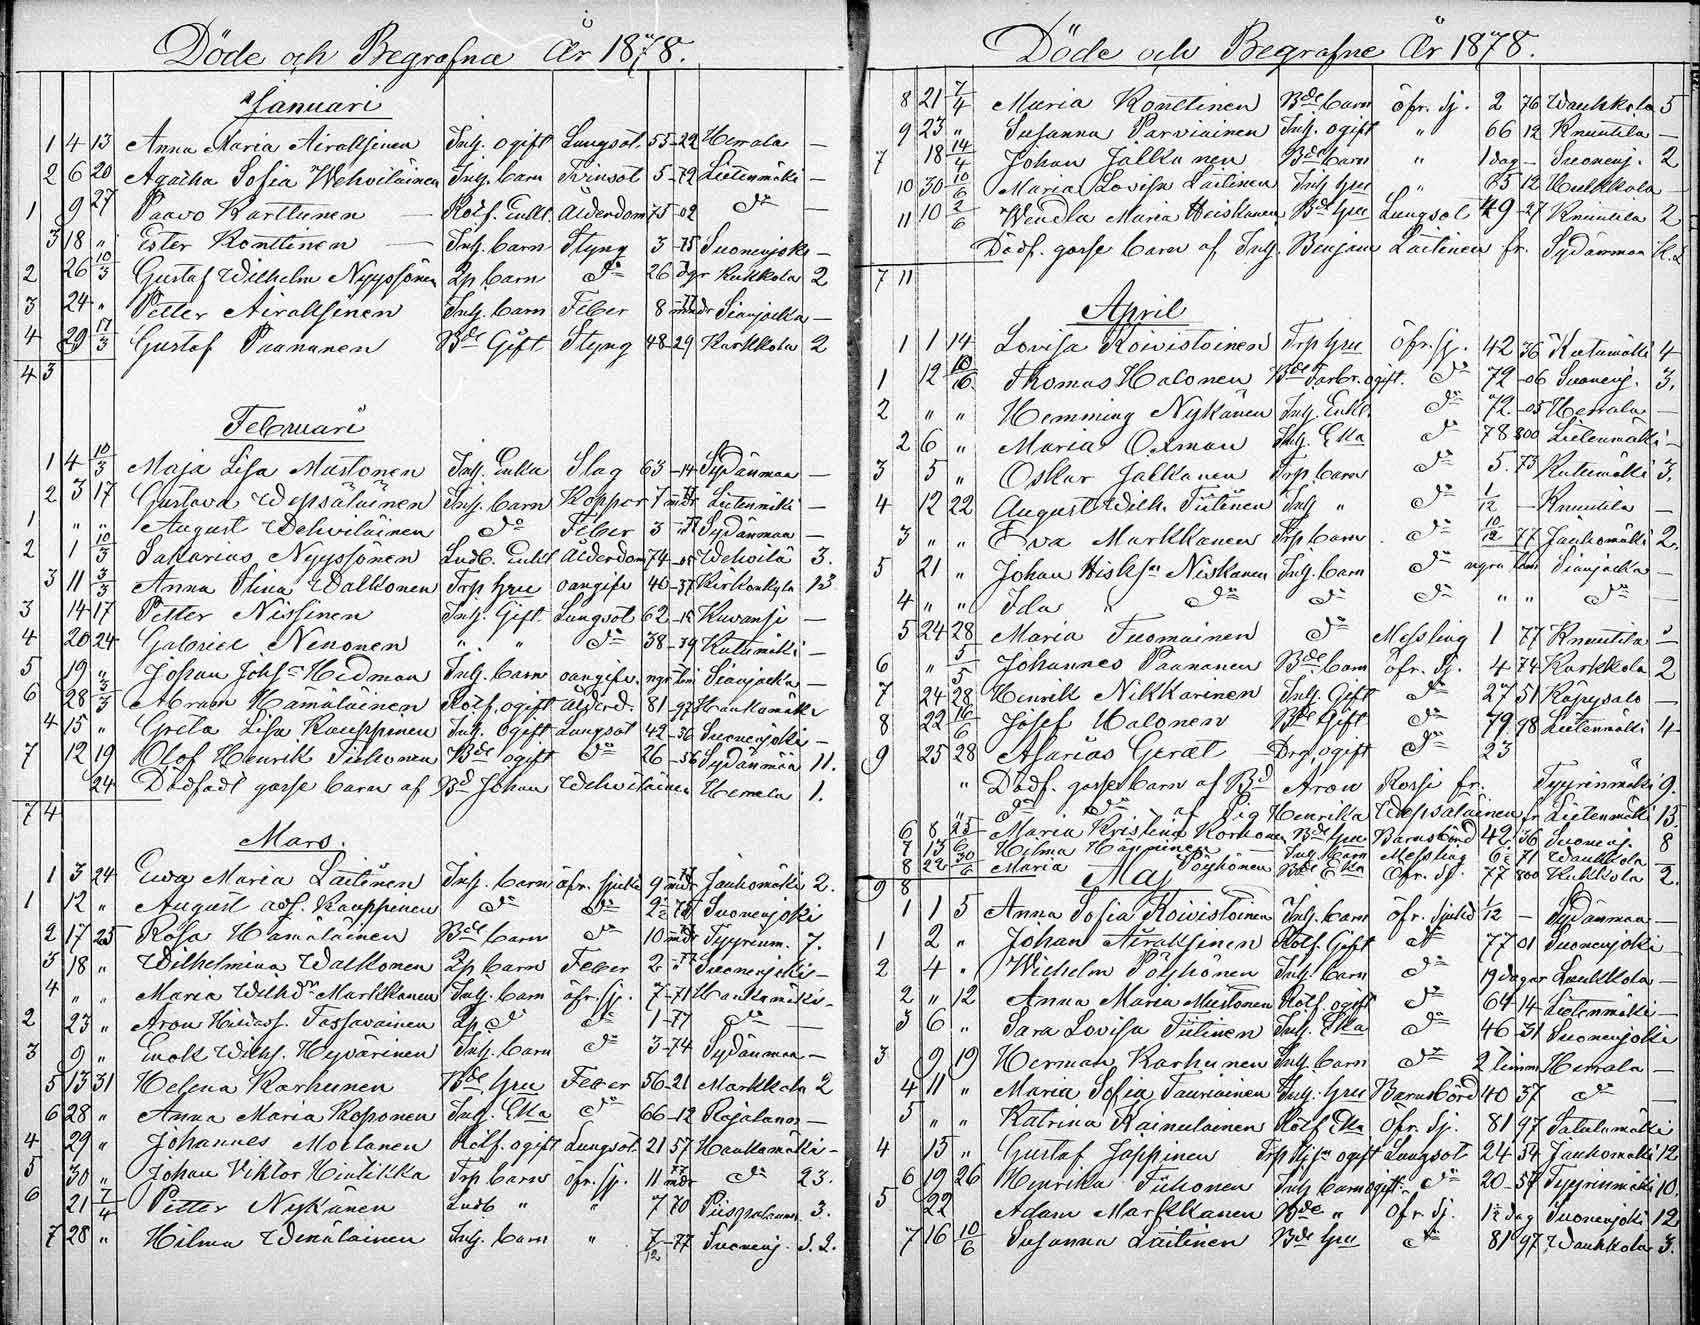 Döde och Begrafne År 1878.
Januari
1 4 13 Anna Maria Airaksinen Inh. ogift Lungsot. 55 - 22 Herrala —
2 6 20 Agatha Sofia Wehviläinen Inh. barn Tvinsot 5 - 72 Lietenmäki —
1 9 27 Paavo Karttunen — Rotf. Enkl. Ålderdom 75 - 02 d:o —
3 18 " Ester Konttinen — Inh. barn Styng 3 - 75 Suonenjoki —
2 26 10/3 Gustaf Wilhelm Nyyssönen Lp barn d:o 26 dgr Kukkola 2
3 24 " Petter Airaksinen Inh. barn Feber 8 mndr 77 Sianjalka —
4 29 17/3 Gustaf Paananen Bde Gift Styng 48 - 29 Karkkola 2
4 3
Februari
1 4 10/3 Maja Lisa Mustonen Inh. Enka Slag 63 - 14 Sydänmaa —
2 3 17 Gustava Wepsäläinen Inh. barn Koppor 7 mdr 77 Lietenmäki —
1 " " August Wehviläinen d:o Feber 3 - Sydänmaa —
2 1 10/3 Sakarias Nyyssönen Ludb. Enkl Ålderdom 74 - 05 Wehvilä 3.
3 11 3/3 Anna Stina Walkonen Trp hru oangifv 40 - 37 Kirkonkyla 13
3 14 17 Petter Nissinen Inh. Gift Lungsot 62 - 15 Kuvansi —
4 20 24 Gabriel Nenonen " " d:o 38 - 39 Kutumäki —
5 19 " Johan Johs:n Hidman Inh. barn oangifv. ngr tim Sianjalka —
6 28 3/3 Abram Hämäläinen Rotf. ogift Ålderd. 81 - 97 Haukamäki
4 15 " Greta Lisa Kauppinen Inh. Ogift Lungsot 42 - 36 Suonenjoki —
7 12 19 Olof Henrik Tiihonen Bde ogift d:o 26 - 56 Sydänmaa 11.
24 Dödfödt gosse barn af Bd Johan Wehviläinen Herrala 1.
7 4
Mars.
1 3 24 Ewa Maria Laitinen Inh. barn öfr. sjukd 9 mdr Jauhomäki 2.
1 12 " August adf. Kauppinen d:o d:o 2 1/2 - 76 Suonenjoki
2 17 25 Rosa Hämäläinen Bde barn d:o 10 mdr Tyyrinm. 7.
3 18 " Wilhelmina Walkonen Lp barn Feber 2 - 77 Suonenjoki —
4 " " Maria Wilh:dr Markkanen Inh. barn öfr. sj. 7 - 71 Haukamäki —
2 23 " Aron Hildasf. Tossavainen Lp d:o d:o 1 - 77 d:o —
3 9 " Enok Wilh. Hyvärinen Inh. barn d:o 3 - 74 Sydänmaa —
5 13 31 Helena Karhunen Bde hru Feber 56 - 21 Markkola 2
6 28 " Anna Maria Koponen Inh. Eka d:o 66 - 12 Rajalanm —
4 29 " Johannes Moilanen Rotf. ogift Lungsot 21 57 Haukamäki —
5 30 " Johan Viktor Hintikka Trp barn öfr. sj. 11 mdr 77 d:o 23.
6 21 7/4 Petter Nykänen Ludb " " 7 70 Piispalanm 3.
7 28 " Hilma Wenäläinen Inh. barn " 7/12 - 77 Suonenj. s. 2.
Döde och Begrafne År 1878.
8 21 7/4 Maria Konttinen Bde barn öfr. sj. 2 76 Wauhkola 5
9 23 " Susanna Parviainen Inh. ogift " 66 12 Knuutila —
7 18 14/4 Johan Jalkanen Bde barn " 1 dag — Suonenj. 2
10 30 10/6 Maria Lovisa Laitinen Inh hru " 65 12 Kukkola —
11 10 2/6 Wendla Maria Heiskanen Bde hru Lungsot 49 - 27 Knuutila 2
Dödf. gosse barn af Inh. Benjam Laitinen fr. Sydänmaa k. 2
7 11
April
1 1 14 Lovisa Koivistoinen Trp hru öfr. sj. 42 36 Kutumäki 4
1 12 10/6 Thomas Halonen Bde Farbr. ogift. d:o 72 - 06 Suonenj. 3.
2 " " Hemming Nykänen Inh. Enkl. d:o 72 - 05 Herrala —
2 6 " Maria Oxman Inh. Eka d:o 78 800 Lietenmäki —
3 5 " Oskar Jalkanen Trp barn d:o 5. 73 Kutumäki 3.
4 12 22 August Wilh. Tiitinen Inh " d:o 1/12 — Knuutila —
3 " " Eva Markkanen Trp barn d:o 10/12 77 Jauhomäki 2.
5 21 " Johan Hisks:n Niskanen Inh. barn d:o ngra tim Sianjalka —
4 " " Ida " d:o d:o d:o " " d:o —
5 24 28 Maria Tuomainen d:o Messling 1 77 Knuutila —
6 " 5/5 Johannes Paananen Bde barn öfr. sj. 4 74 Karkkola 2
7 24 28 Henrik Nikkarinen Inh. Gift d:o 27 51 Kopysalo —
8 22 16/6 Josef Halonen Bde Gift d:o 79 98 Lietenmäki 4
9 25 28 Asarias Geråt Drg. ogift d:o 23
" Dödf. gosse barn af Bd Aron Rossi fr. Tyyrinmäki 9.
" d:o d:o af Pig Henrika Wepsäläinen fr Lietenmäki 15.
6 8 25 Maria Kristina Korhonen Bde hru Barnsbörd 42 36 Suonenj. 8
7 13 6 Hilma Happinen — Inh. barn Messling 6 1/2 71 Wauhkola
8 22 30/6 Maria Pöyhönen Bde Eka Öfr. sj. 77 800 Kukkola 2.
9 8
Maj
1 1 5 Anna Sofia Koivistoinen Inh. barn öfr. sjukd 1/12 — Sydänmaa —
1 2 " Johan Airaksinen Rotf. Gift d:o 77 01 Suonenjoki —
2 4 " Wilhelm Pöyhönen Inh. barn d:o 19 dagar Kukkola —
2 " 12 Anna Maria Mustonen Rotf. ogift d:o 64 - 14 Lietenmäki —
3 6 " Sara Lovisa Tiitinen Inh. Eka d:o 46 - 31 Suonenjoki
3 9 19 Herman Karhunen Inh. barn d:o 2 timm Herrala —
4 11 " Maria Sofia Tauriainen Inh. hru Barnsbörd 40 37 d:o —
5 " " Katrina Rainulainen Rotf Eka Öfr. sj. 81 97 Satulamäki
4 13 " Gustaf Jäppinen Trp ogift Lungsot 24 54 Jauhomäki 12
6 19 26 Henrika Tiihonen Inh barn ogift. d:o 20 - 57 Tyyrinmäki 10.
5 22 Adam Markkanen Bde " Öfr. sj. 1 1/2 dag Suonenjoki 12
7 16 10/6 Susanna Laitinen Bde hru d:o 81 97 Wauhkola 3.